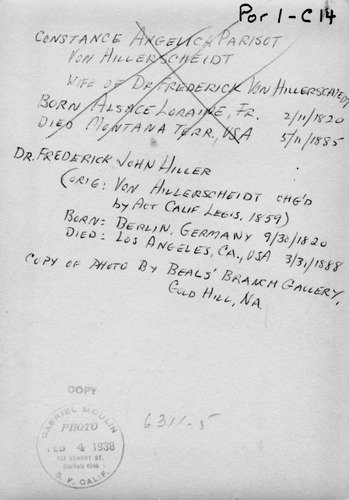 Por 1-C14
CONSTANCE ANGELICA PARISOT
VON HILLERSCHEIDT
WIFE OF DR. FREDERICK VON HILLERSCHEIDT
BORN ALSACE LORAINE, FR. 2/11/1820
DIED MONTANA TERR., USA 5/11/1885
DR. FREDERICK JOHN HILLER
(ORIG: VON HILLERSCHEIDT CHG'D
by ACT CALIF. LEGIS. 1859)
BORN: BERLIN, GERMANY 9/30/1820
DIED: LOS ANGELES, CA., USA 3/31/1888
COPY OF PHOTO BY BEALS' BRANCH GALLERY,
GOLD HILL, NA.
COPY
6311-5
GABRIEL MOULIN
PHOTO
FEB 4 1938
KEARNY ST.
S. F. CALIF.